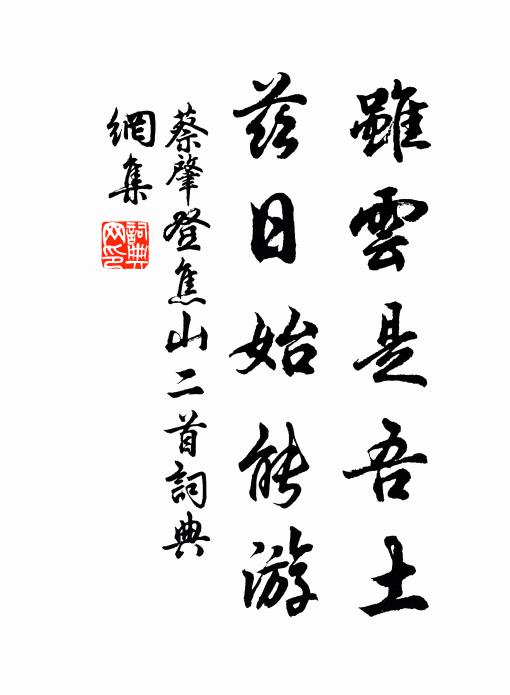 雖雲是吾土
茲日始能游
蔡肇登焦山二首詞典
網集
詞典
网印